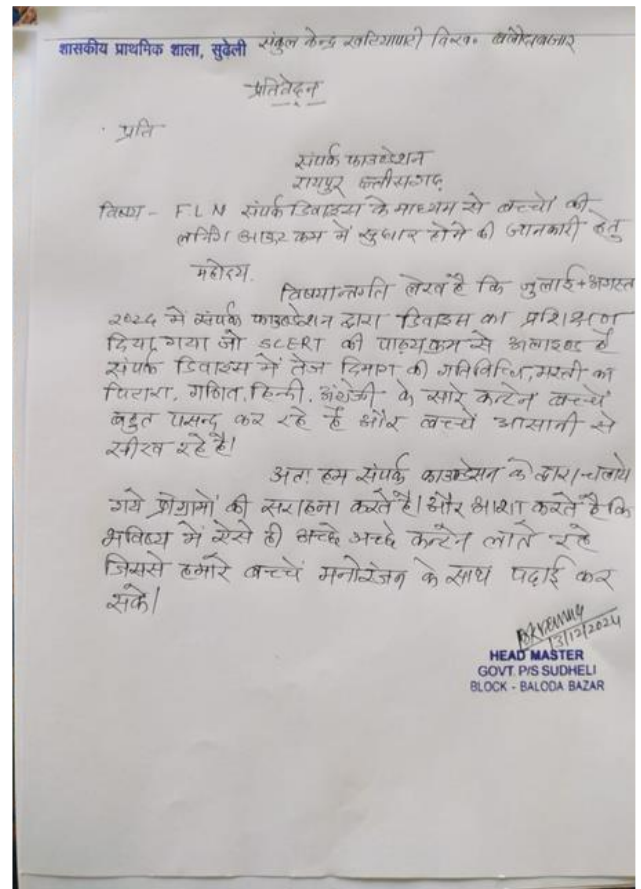 शासकीय प्राथमिक शाला, सुढ़ेली संकुल केन्द्र खटियापाटी वि.ख. बलौदाबाजार
प्रतिवेदन
प्रति
संपर्क फाउण्डेशन
रायपुर छत्तीसगढ़
विषय - F.L.N संपर्क डिवाइस के माध्यम से बच्चों की
लर्निंग आऊट कम में सुधार होने की जानकारी हेतु
महोदय.
विषयान्तर्गत लेख है कि जुलाई+अगस्त
2024 में संपर्क फाउण्डेशन द्वारा डिवाइस का प्रशिक्षण
दिया गया जो SCERT की पाठ्यक्रम से अलाइण्ड है
संपर्क डिवाइस में तेज दिमाग की गतिविधि, मस्ती का
पिटारा, गणित, हिन्दी, अंग्रेजी के सारे कन्टेन बच्चें
बहुत पसन्द कर रहे है और बच्चें आसानी से
सीख रहे है।
अतः हम संपर्क फाउण्डेसन के द्वारा चलाये
गये प्रोग्रामों की सराहना करते है। और आशा करते है कि
भविष्य में ऐसे ही अच्छे अच्छे कन्टेन लाते रहे
जिससे हमारे बच्चें मनोरंजन के साथ पढ़ाई कर
सके।
13/12/2024
HEAD MASTER
GOVT. P/S SUDHELI
BLOCK - BALODA BAZAR